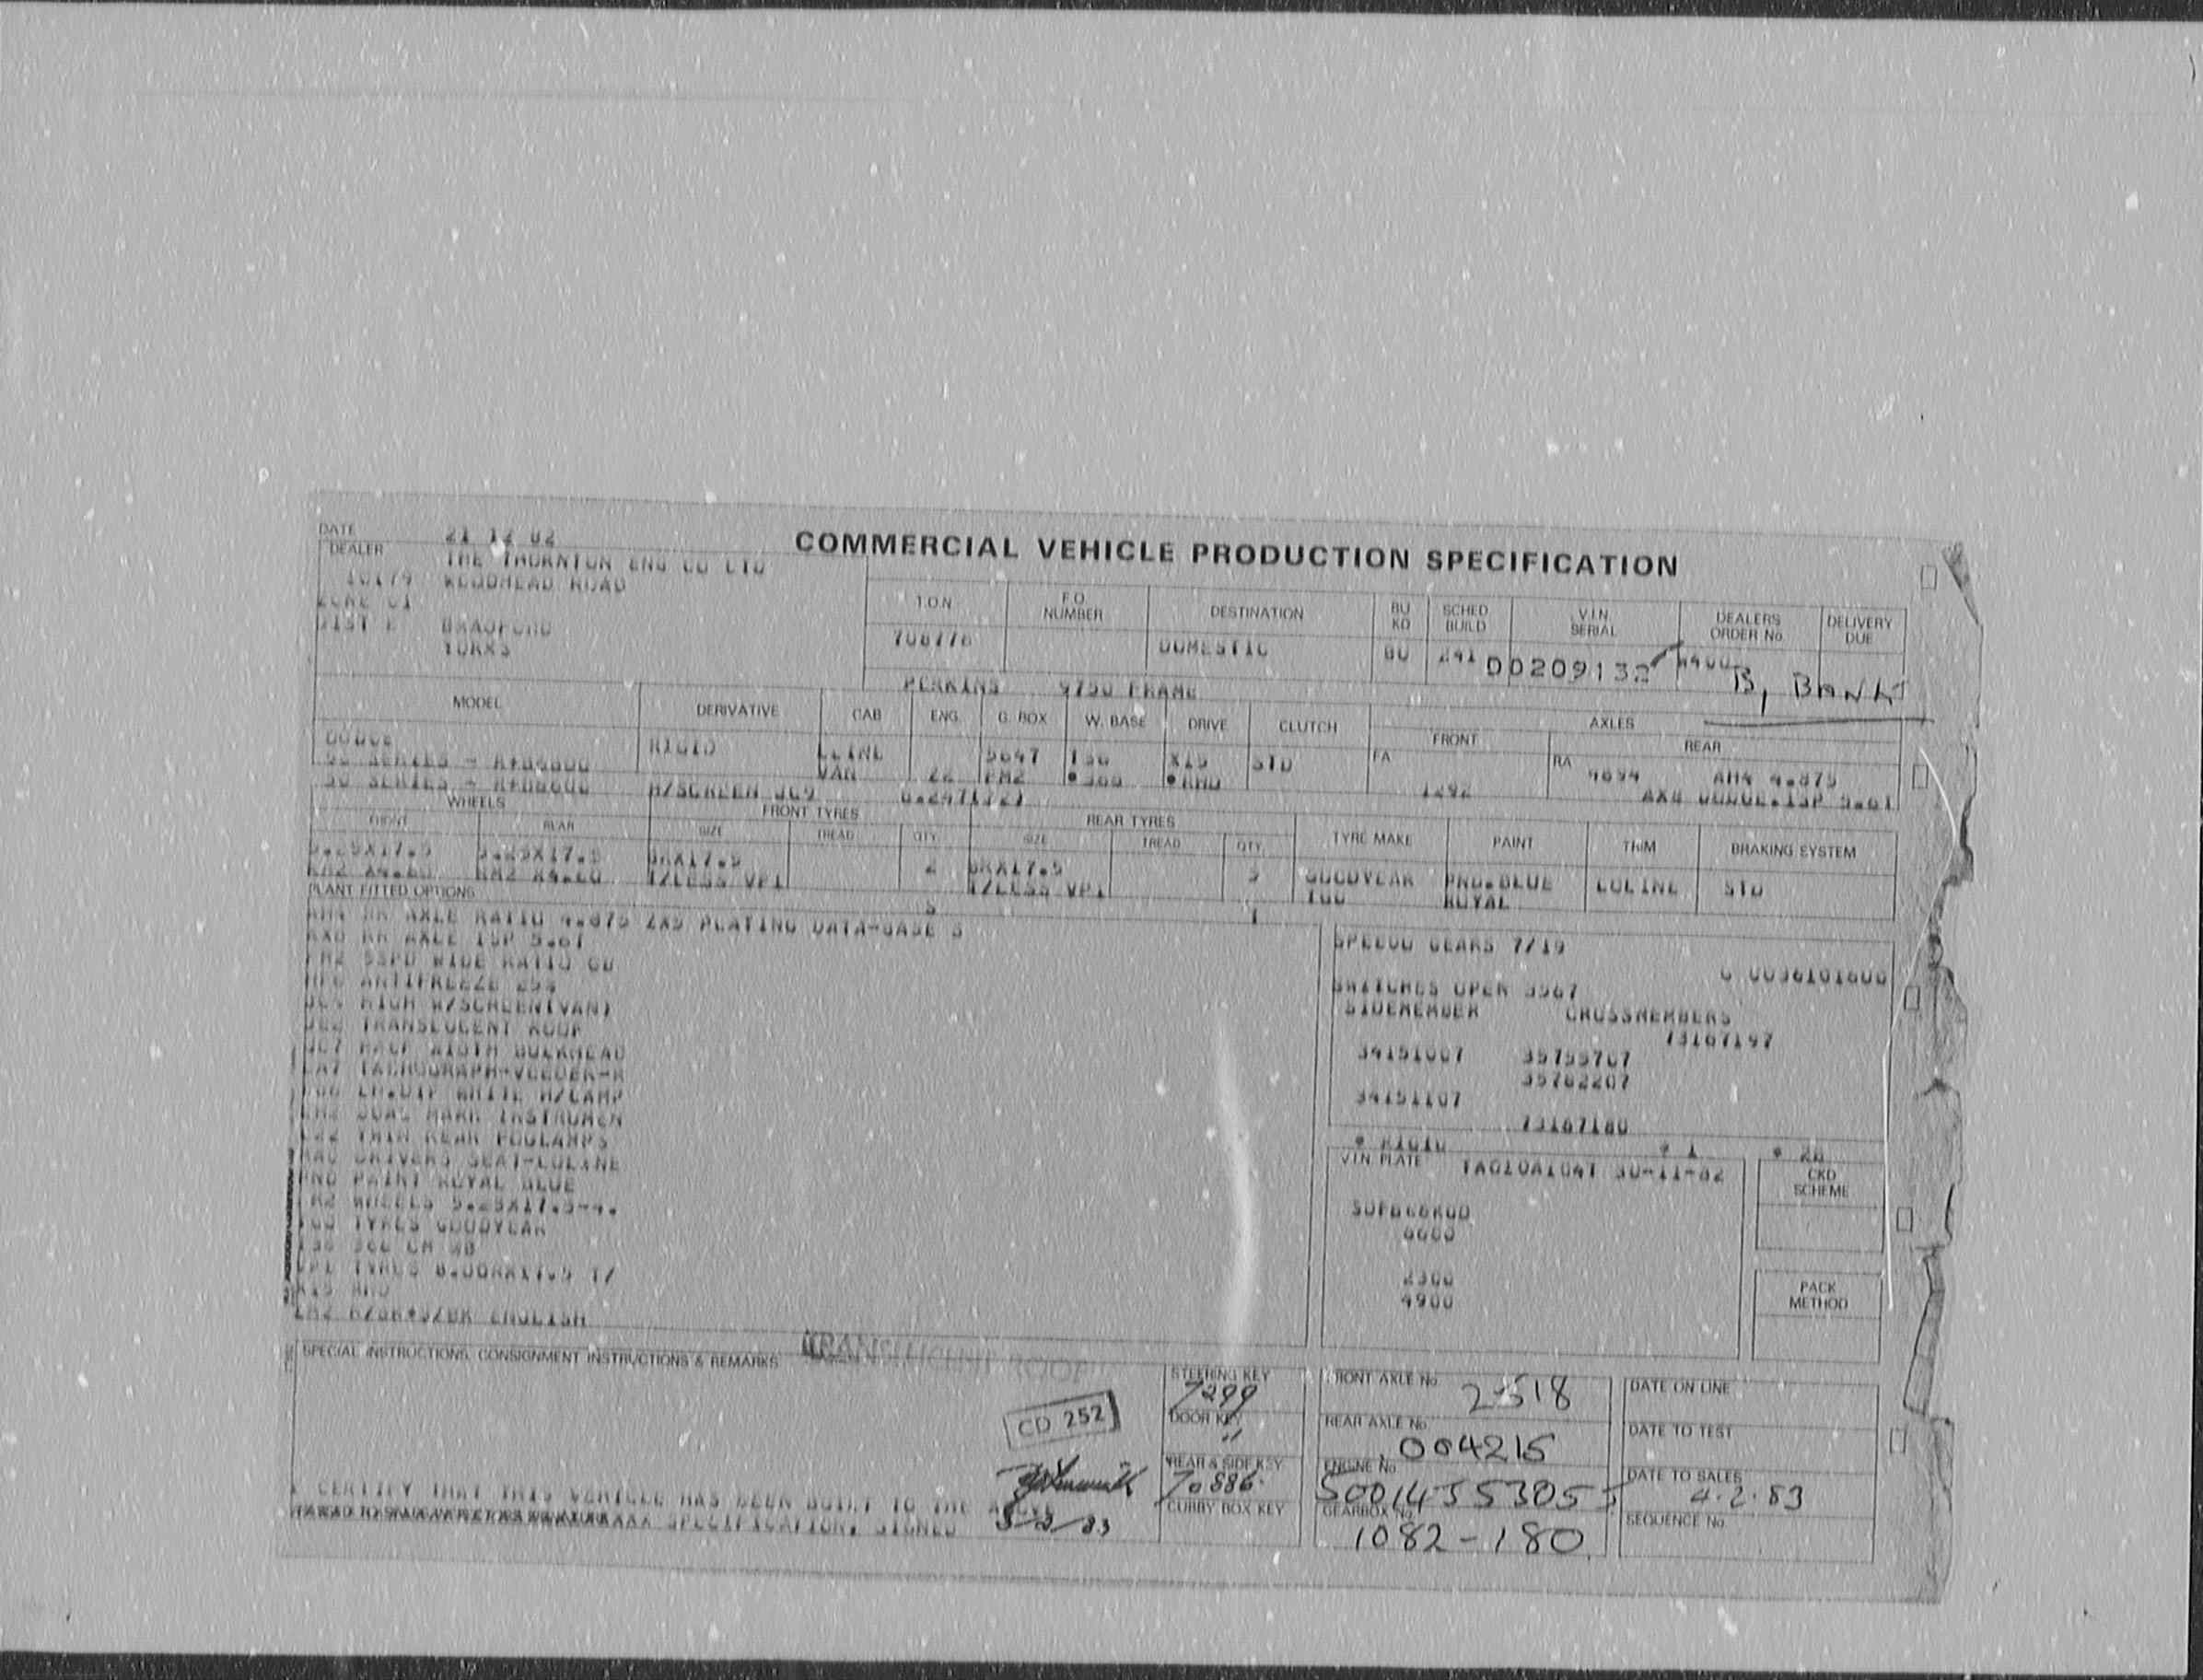 DATE 21 12 82
COMMERCIAL VEHICLE PRODUCTION SPECIFICATION
DEALER THE THORNTON ENG CO LTD
10179 WOODHEAD ROAD
ZONE 01
DIST E BRADFORD
YORKS
T.O.N. F.O. NUMBER DESTINATION BU KD SCHED BUILD V.I.N. SERIAL DEALERS ORDER No. DELIVERY DUE
708776 DOMESTIC BU 241 D0209132
B, BANKS
PERKINS 9750 FRAME
MODEL DERIVATIVE CAB ENG. G. BOX W. BASE DRIVE CLUTCH AXLES
FRONT REAR
DODGE RIGID LLINE 5647 136 X15 STD FA RA 4694 AH4 4.875
50 SERIES - VAN 22 FM2 •366 •RHD
50 SERIES - H/SCREEN JC9 1292 AX8 DODGE.ISP 5.61
WHEELS FRONT TYRES REAR TYRES
FRONT REAR SIZE TREAD QTY. SIZE TREAD QTY. TYRE MAKE PAINT TRIM BRAKING SYSTEM
5.25X17.5 5.25X17.5 8RX17.5 2 8RX17.5 5 GOODYEAR PND.BLUE LOLINE STD
T/LESS VP1 T/LESS VP1 TGO ROYAL
PLANT FITTED OPTIONS
AH4 RR AXLE RATIO 4.875 ZX5 PLATING DATA-BASE S
AX8 RR AXLE ISP 5.61
FM2 5SPD WIDE RATIO GB
ANTIFREEZE 25%
JC9 HIGH W/SCREEN(VAN)
TRANSLUCENT ROOF
HALF WIDTH BULKHEAD
TACHOGRAPH-VEEDER-R
LH.DIP WHITE H/LAMP
DUAL MARK INSTRUMEN
TWIN REAR FOGLAMPS
DRIVERS SEAT-LOLINE
PND PAINT ROYAL BLUE
WHEELS 5.25X17.5-4.
TGO TYRES GOODYEAR
136 366 CM WB
VP1 TYRES 8.00RX17.5 T/
X15 RHD
H/BK+S/BK ENGLISH
SPEEDO GEARS 7/19
G 0036101600
SWITCHES OPEN 3567
SIDEMEMBER CROSSMEMBERS
73167197
34151007 35755707
35762207
34151107
73167180
• RIGID • 1 • 28
V.I.N. PLATE TA010A104T 30-11-82
CKD SCHEME
6600
2300
4900
PACK METHOD
SPECIAL INSTRUCTIONS, CONSIGNMENT INSTRUCTIONS & REMARKS TRANSLUCENT ROOF
CD 252
STEERING KEY 7299
DOOR KEY "
REAR & SIDE KEY 70886
CUBBY BOX KEY
FRONT AXLE No. 2518
REAR AXLE No. 004215
ENGINE No.
GEARBOX No. 1082-180
DATE ON LINE
DATE TO TEST
DATE TO SALES 4.2.83
SEQUENCE No.
I CERTIFY THAT THIS VEHICLE HAS BEEN BUILT TO THE ABOVE
SPECIFICATION, SIGNED 3-2-83